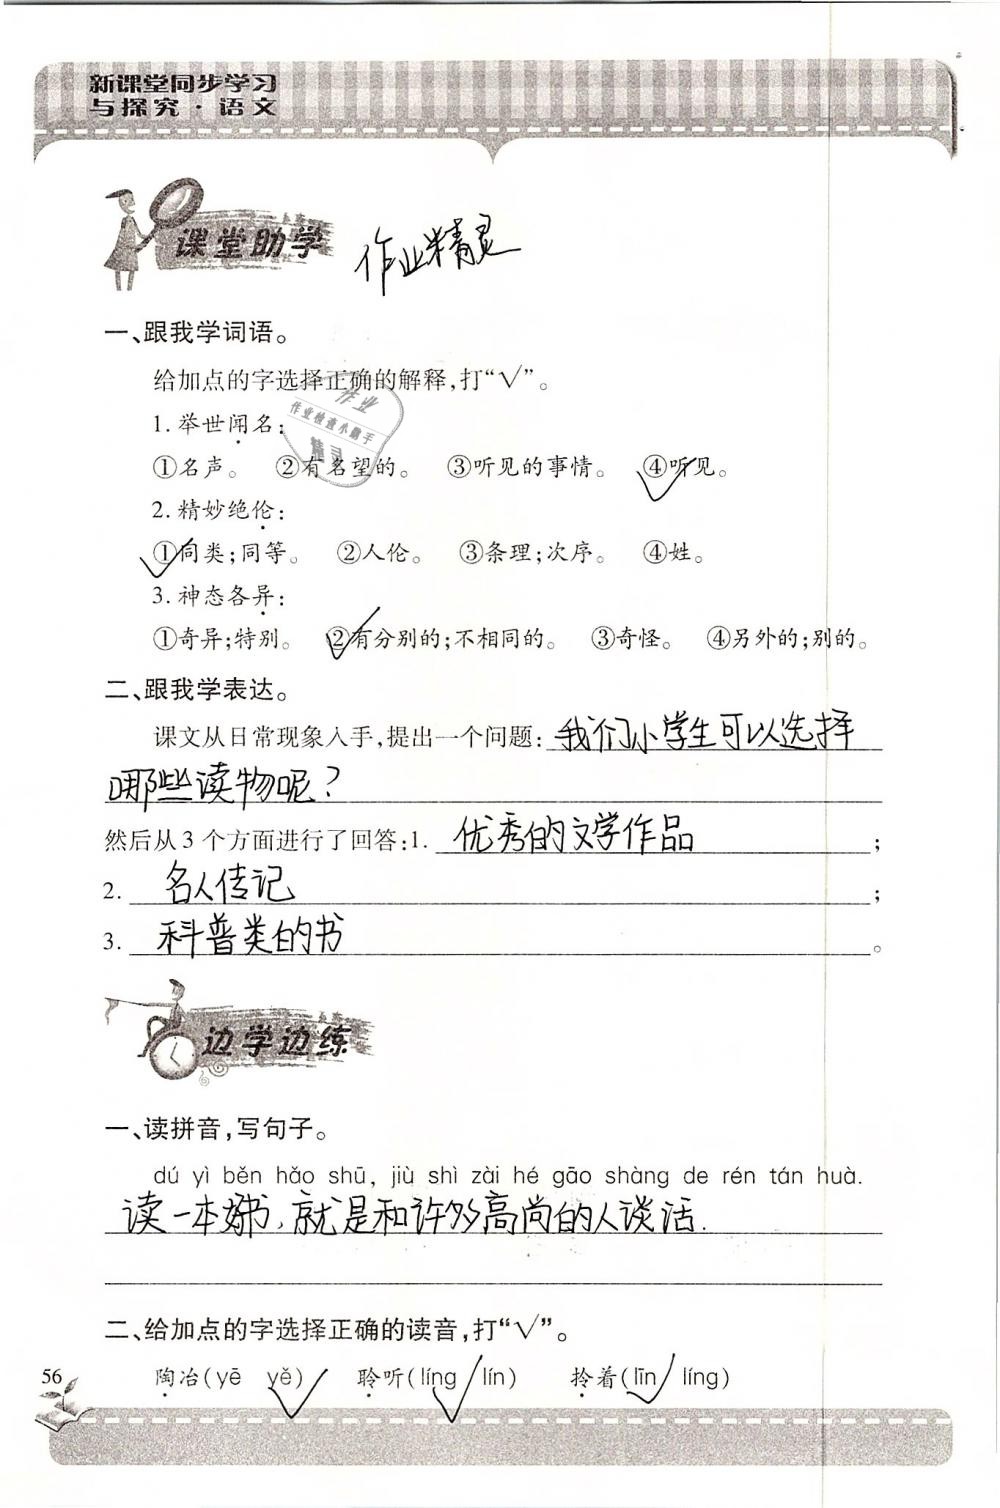 新课堂同步学习
与探究·语文
课堂助学
作业精灵
一、跟我学词语。
给加点的字选择正确的解释,打“√”。
作业
作业检查小帮手
精灵
1. 举世闻名:
①名声。 ②有名望的。 ③听见的事情。 ④听见。
2. 精妙绝伦:
①同类;同等。 ②人伦。 ③条理;次序。 ④姓。
3. 神态各异:
①奇异;特别。 ②有分别的;不相同的。 ③奇怪。 ④另外的;别的。
二、跟我学表达。
课文从日常现象入手,提出一个问题: 我们小学生可以选择
哪些读物呢?
然后从3个方面进行了回答:1. 优秀的文学作品;
2. 名人传记;
3. 科普类的书。
边学边练
一、读拼音,写句子。
dú yì běn hǎo shū, jiù shì zài hé gāo shàng de rén tán huà.
读一本好书,就是和许多高尚的人谈话.
二、给加点的字选择正确的读音,打“√”。
陶冶(yē yě) 聆听(líng lín) 拎着(līn líng)
56